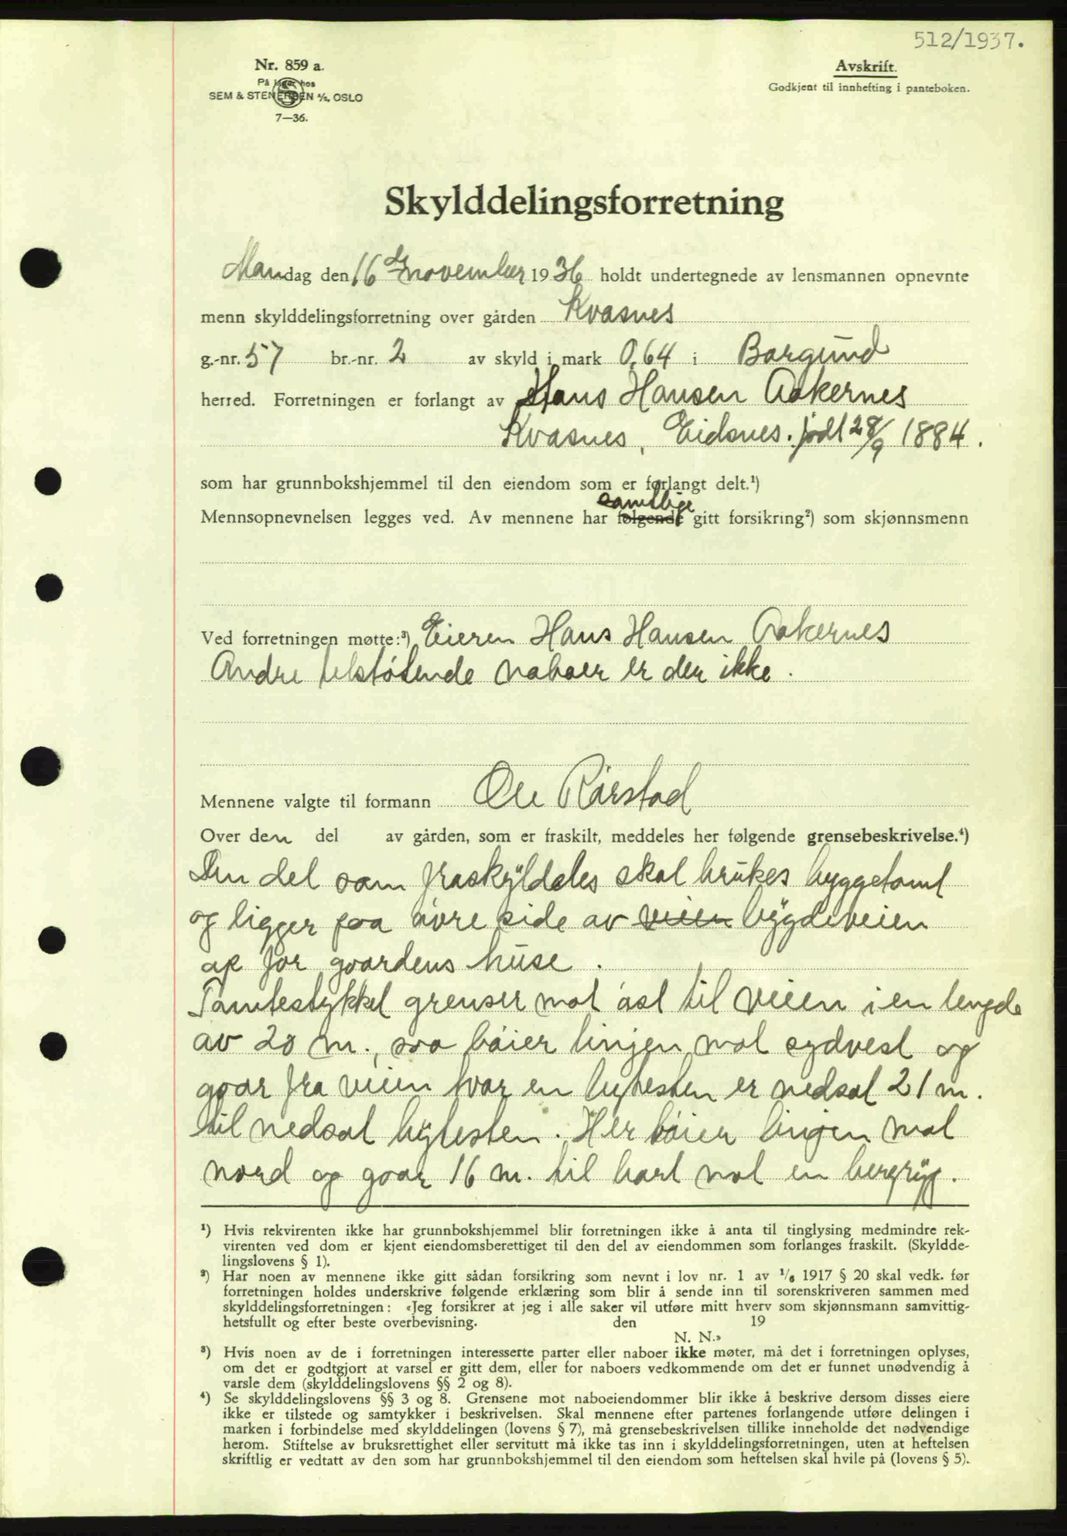 512/1937.
Nr. 859 a.
På lager hos
SEM & STENERSEN A/S, OSLO
7—36.
Avskrift.
Godkjent til innhefting i panteboken.
Skylddelingsforretning
Mandag den 16de november 1936 holdt undertegnede av lensmannen opnevnte
menn skylddelingsforretning over gården Kvasnes
g.-nr. 57 br.-nr. 2 av skyld i mark 0,64 i Borgund
herred. Forretningen er forlangt av Hans Hansen Aakernes
Kvasnes, Eidsnes. født 28/9 1884.
som har grunnbokshjemmel til den eiendom som er forlangt delt.¹)
samtlige
Mennsopnevnelsen legges ved. Av mennene har følgende gitt forsikring²) som skjønnsmenn
Ved forretningen møtte:³) Eieren Hans Hansen Aakernes
Andre tilstøtende naboer er der ikke.
Mennene valgte til formann Ole Rørstad
Over den del av gården, som er fraskilt, meddeles her følgende grensebeskrivelse.⁴)
Den del som fraskyldeles skal brukes byggetomt
og ligger paa øvre side av veien bygdeveien
op for gaardens huse.
Tomtestykket grenser mot øst til veien i en lengde
av 20 m., saa bøier linjen mot sydvest og
gaar fra veien hvor en bytesten er nedsat 21 m.
til nedsat bytesten. Her bøier linjen mot
nord og gaar 16 m. til kors mot en bergryg.
¹) Hvis rekvirenten ikke har grunnbokshjemmel blir forretningen ikke å anta til tinglysing medmindre rek-
virenten ved dom er kjent eiendomsberettiget til den del av eiendommen som forlanges fraskilt. (Skyldde-
lingslovens § 1).
²) Har noen av mennene ikke gitt sådan forsikring som nevnt i lov nr. 1 av 1/6 1917 § 20 skal vedk. før
forretningen holdes underskrive følgende erklæring som blir å sende inn til sorenskriveren sammen med
skylddelingsforretningen: «Jeg forsikrer at jeg i alle saker vil utføre mitt hverv som skjønnsmann samvittig-
hetsfullt og efter beste overbevisning. den 19
N. N.»
³) Hvis noen av de i forretningen interesserte parter eller naboer ikke møter, må det i forretningen oplyses,
om det er godtgjort at varsel er gitt dem, eller for naboers vedkommende om det er funnet unødvendig å
varsle dem (skylddelingslovens §§ 2 og 8).
⁴) Se skylddelingslovens §§ 3 og 8. Grensene mot naboeiendommer blir ikke å beskrive dersom disses eiere
ikke er tilstede og samtykker i beskrivelsen. Skal mennene efter partenes forlangende utføre delingen i
marken i forbindelse med skylddelingen (lovens § 7), må grensebeskrivelsen tillike inneholde det nødvendige
herom. Stiftelse av bruksrettighet eller servitutt må ikke tas inn i skylddelingsforretningen, uten at heftelsen
skriftlig er vedtatt av den som har grunnbokshjemmel til den eiendom som heftelsen skal hvile på (lovens § 5).